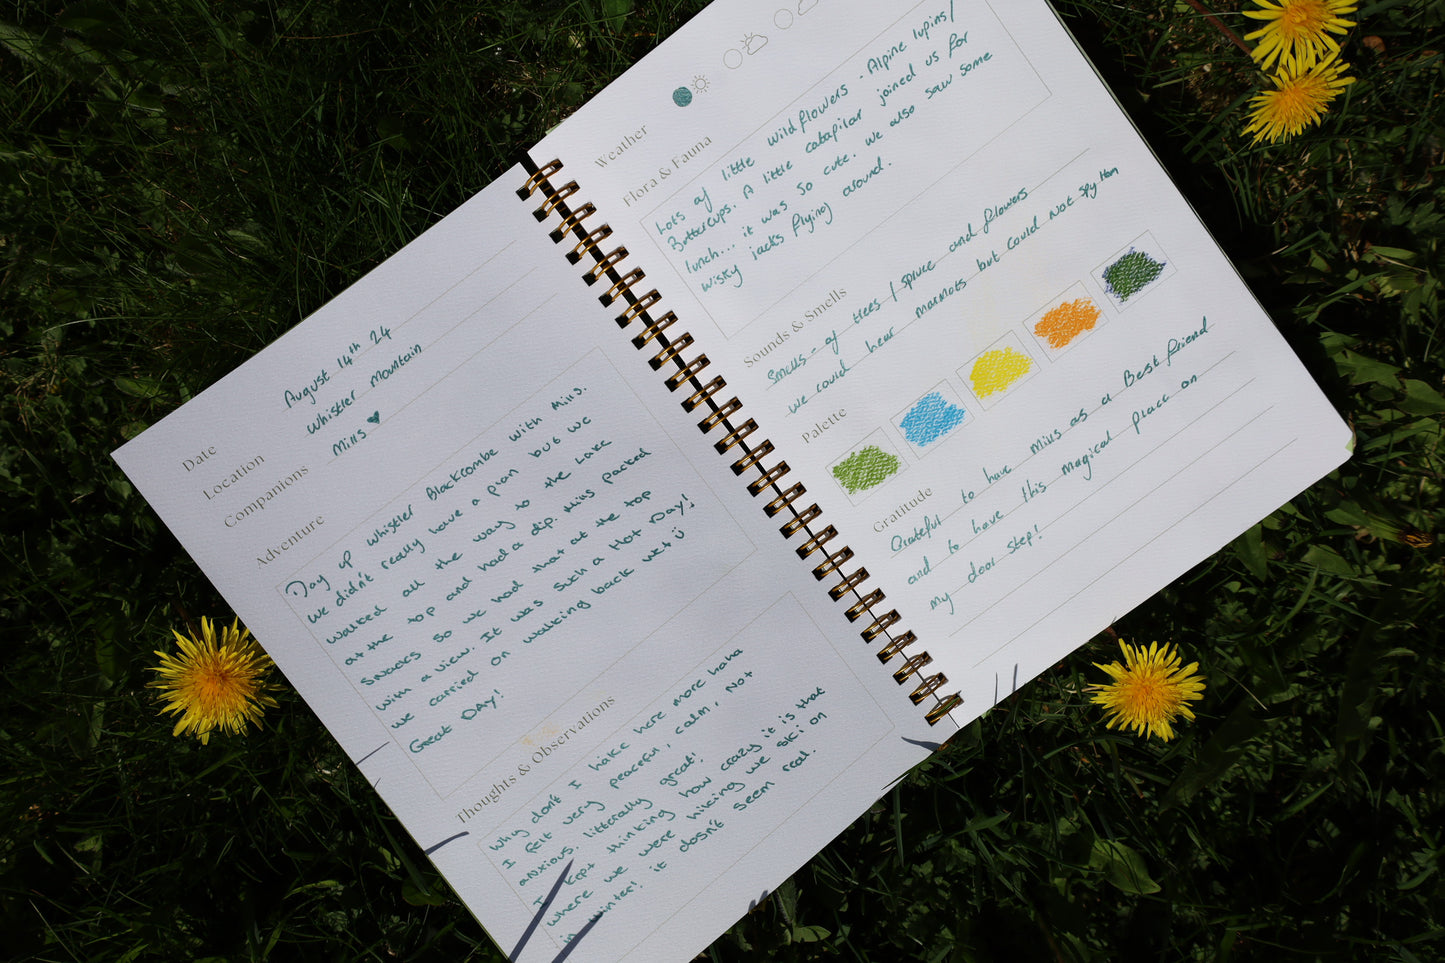 Date
August 14th 24
Location
Whistler Mountain
Companions
Mills ♥
Adventure
Day up Whistler Blackcombe with Mills.
We didn't really have a plan but we
walked all the way to the Lake
at the top and had a dip. Mills packed
snacks so we had that at the top
with a view. It was such a Hot Day!
we carried on walking back wet
Great DAY!
Thoughts & Observations
Why don't I hike here more haha
I felt very peaceful, calm, Not
anxious. litterally great!
I kept thinking how crazy it is that
where we were hiking we ski on
in winter! it dosn't seem real.
Weather
Flora & Fauna
Lots of little wildflowers - Alpine lupins/
Buttercups. A little catapilar joined us for
lunch... it was so cute. we also saw some
wisky jacks flying around.
Sounds & Smells
Smells - of trees / spruce and flowers
we could hear marmots but could not spy them
Palette
Gratitude
Grateful to have Mills as a Best friend
and to have this magical place on
my door step!